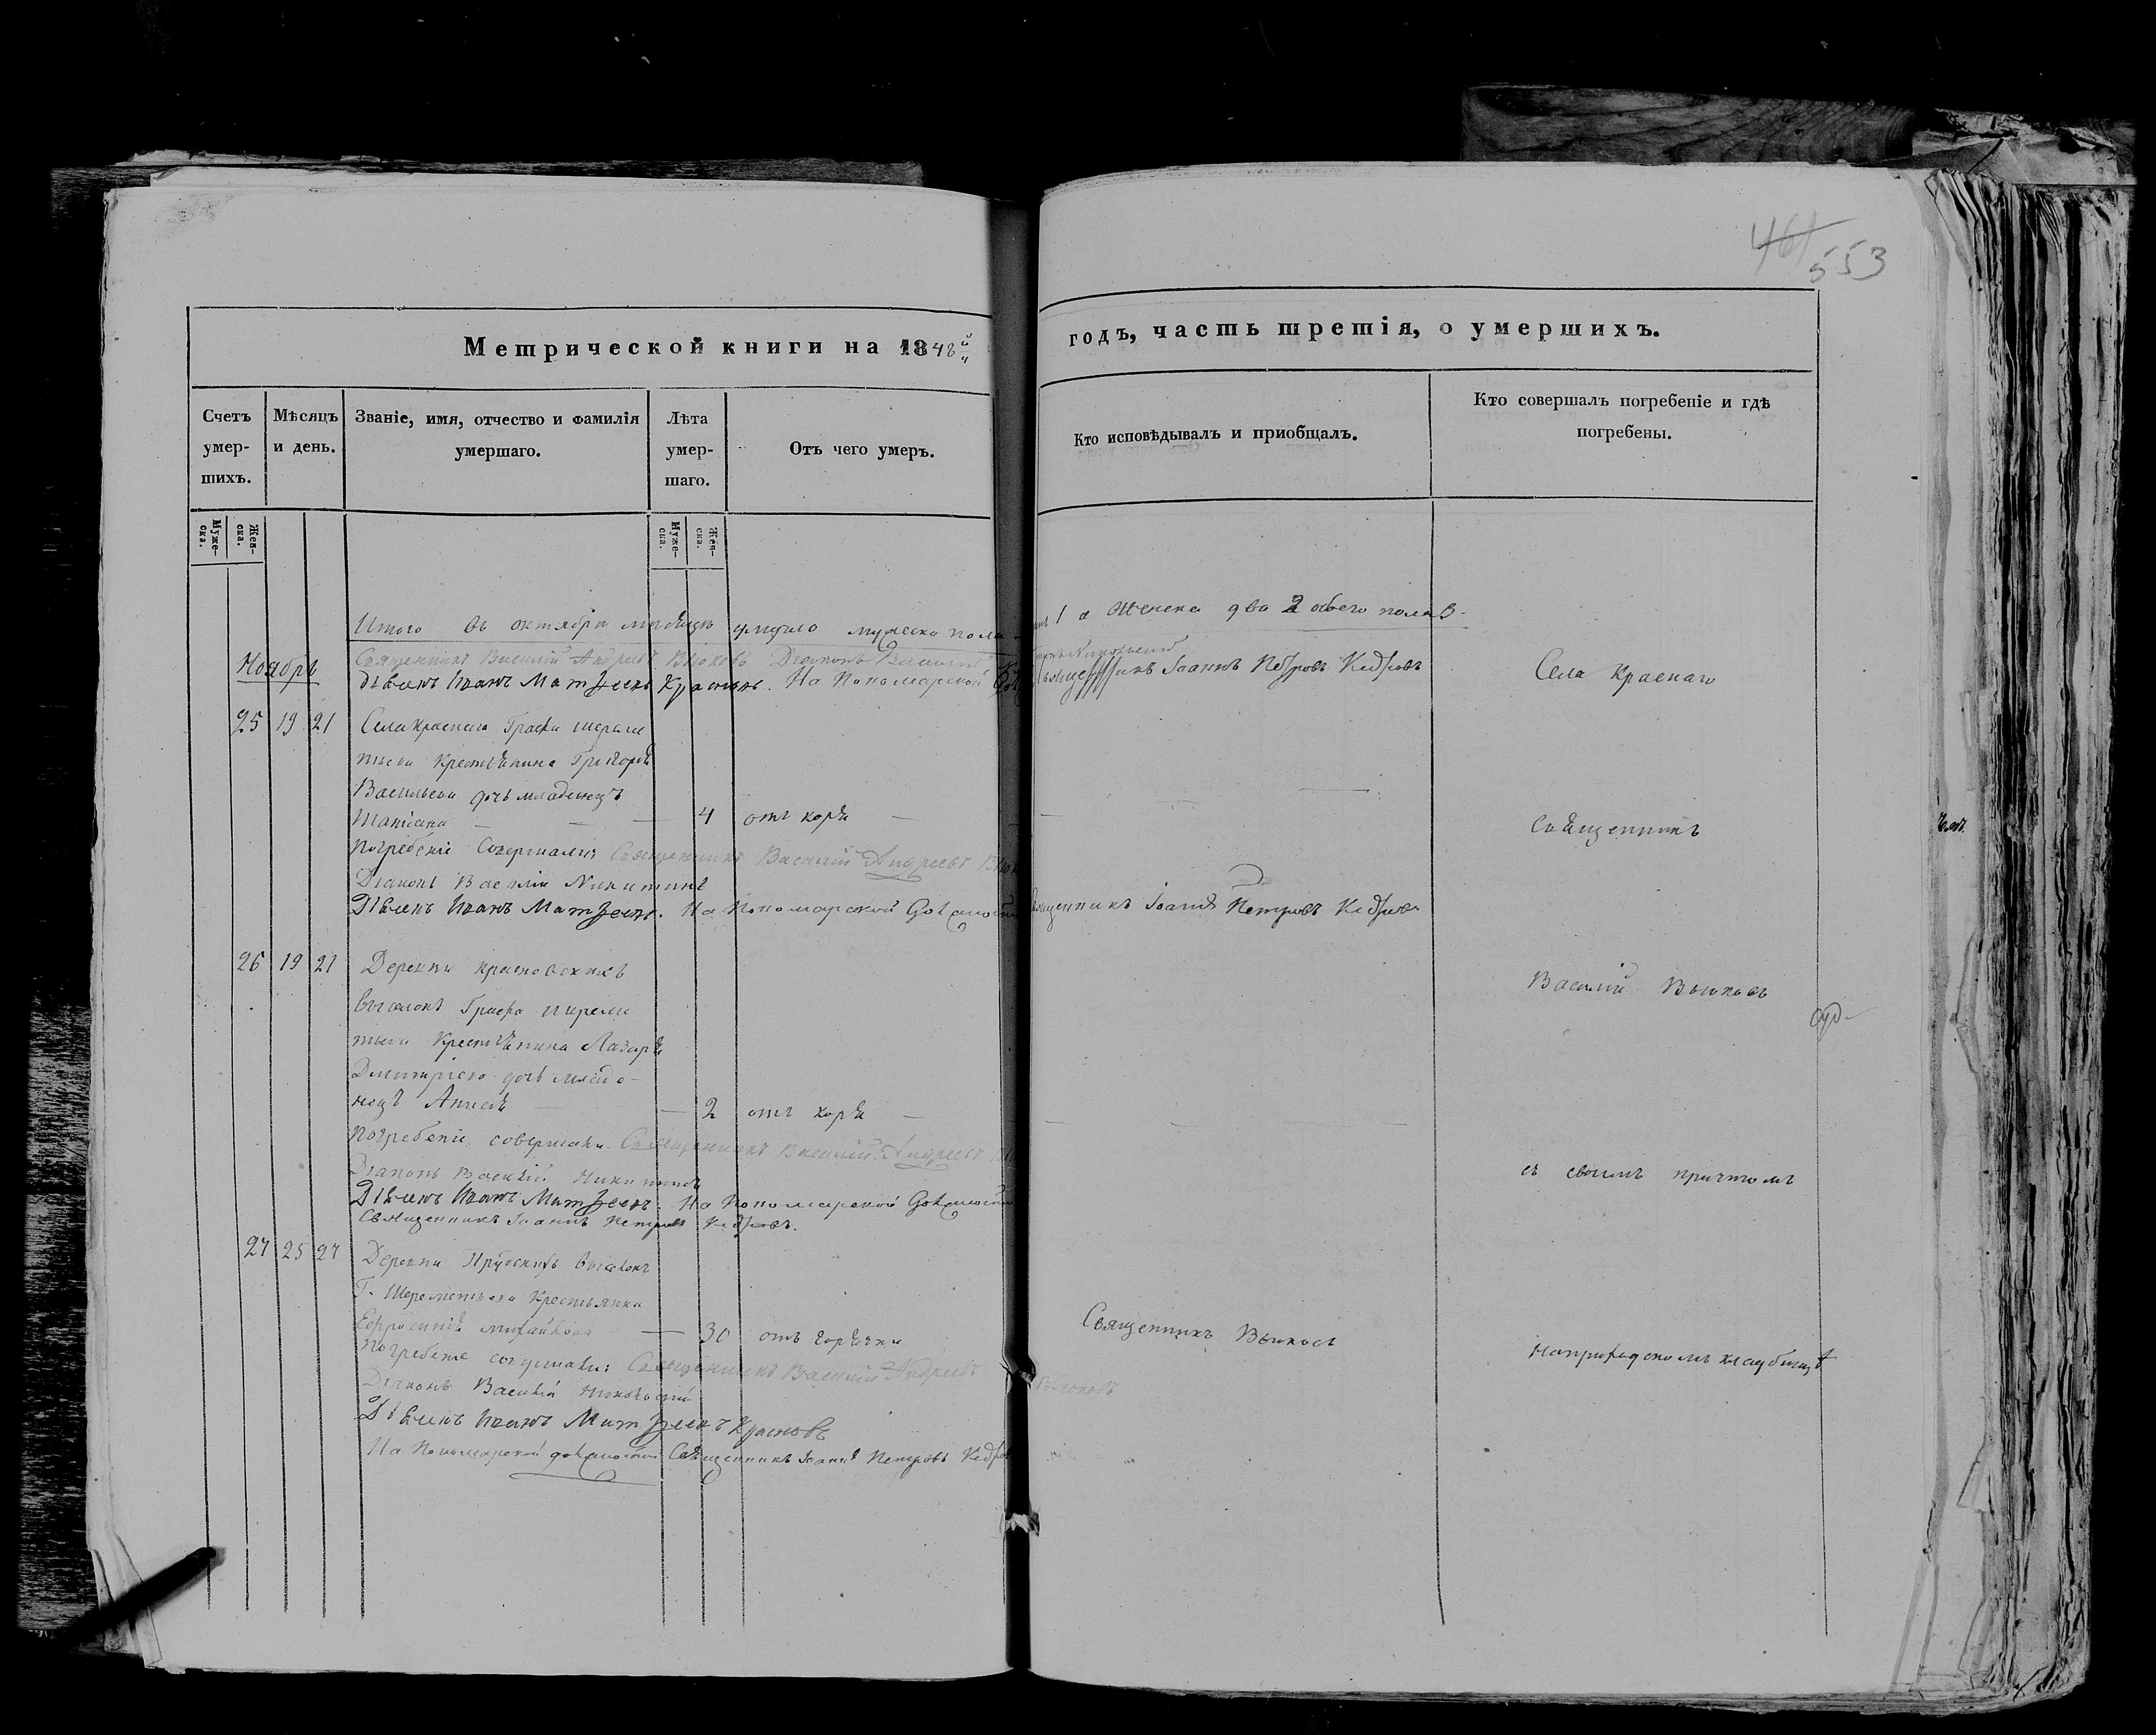 461
553
Метрической книги на 1848й годъ, часть третія, о умершихъ.
Счетъ умер-шихъ.
Мѣсяцъ и день.
Званіе, имя, отчество и фамилія умершаго.
Лѣта умер-шаго.
Отъ чего умеръ.
Кто исповѣдывалъ и приобщалъ.
Кто совершалъ погребеніе и гдѣ погребены.
Муже-ска.
Жен-ска.
Муже-ска.
Жен-ска.
Итого въ октябрѣ мѣсяцѣ умерло мужеска пола 1 а женска два 2 обего пола 3
Священникъ Василій Андреевъ Діаконъ Василій
Ноябрь
Дьячекъ Иванъ Матвеевъ Красновъ. На Пономарской Священникъ Іоаннъ Петровъ Кедровъ
Села Краснаго
25 19 21 Села Краснаго Графа Шереме
тьева Крестьянина Григорья
Васильева дочь младенецъ
Татіана 4 отъ кори
Священникъ
Погребеніе Совершали: Священникъ Василій Андреевъ
Діаконъ Василій
Дьячекъ Иванъ Матвеевъ. На Пономарской Должности Священникъ Іоаннъ Петровъ Кедровъ
26 19 21 Деревни Красновскихъ
Выселокъ Графа Шереме
тьева Крестьянина Лазаря
Дмитріева дочь младе-
нецъ 2 отъ кори
Василій
Погребеніе совершали Священникъ Василій Андреевъ
Діаконъ Василій
Дьячекъ Иванъ Матвеевъ. На Пономарской Должности
Священникъ Іоаннъ Петровъ Кедровъ.
съ своимъ причтомъ
27 25 27 Деревни выселокъ
Г. Шереметьева Крестьянка
Ефросинія Михайлова 30 отъ горячки
Священникъ
на приходскомъ кладбищѣ
Погребеніе совершали: Священникъ Василій Андреевъ
Діаконъ Василій
Дьячекъ Иванъ Матвеевъ Красновъ
На Пономарской должности Священникъ Іоаннъ Петровъ Кедровъ